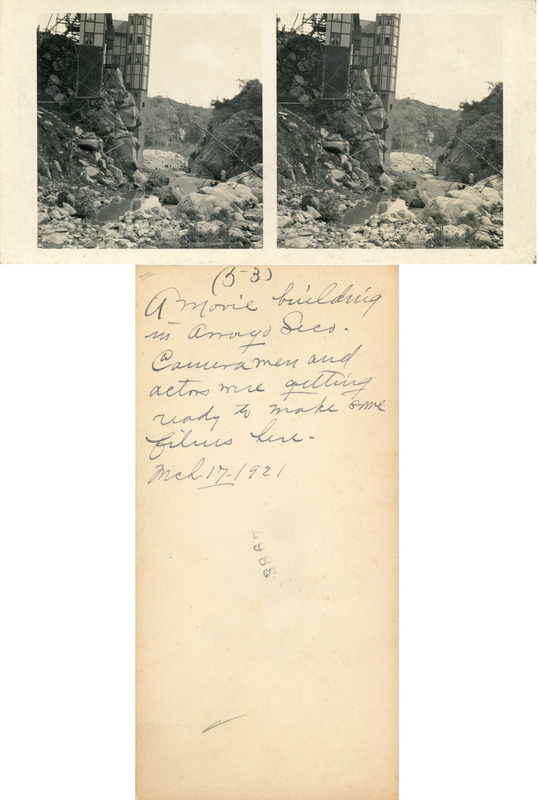 (53)
A Movie building
in Arroyo Seco.
Camera men and
actors were getting
ready to make some
films here-
Mch-17-1921